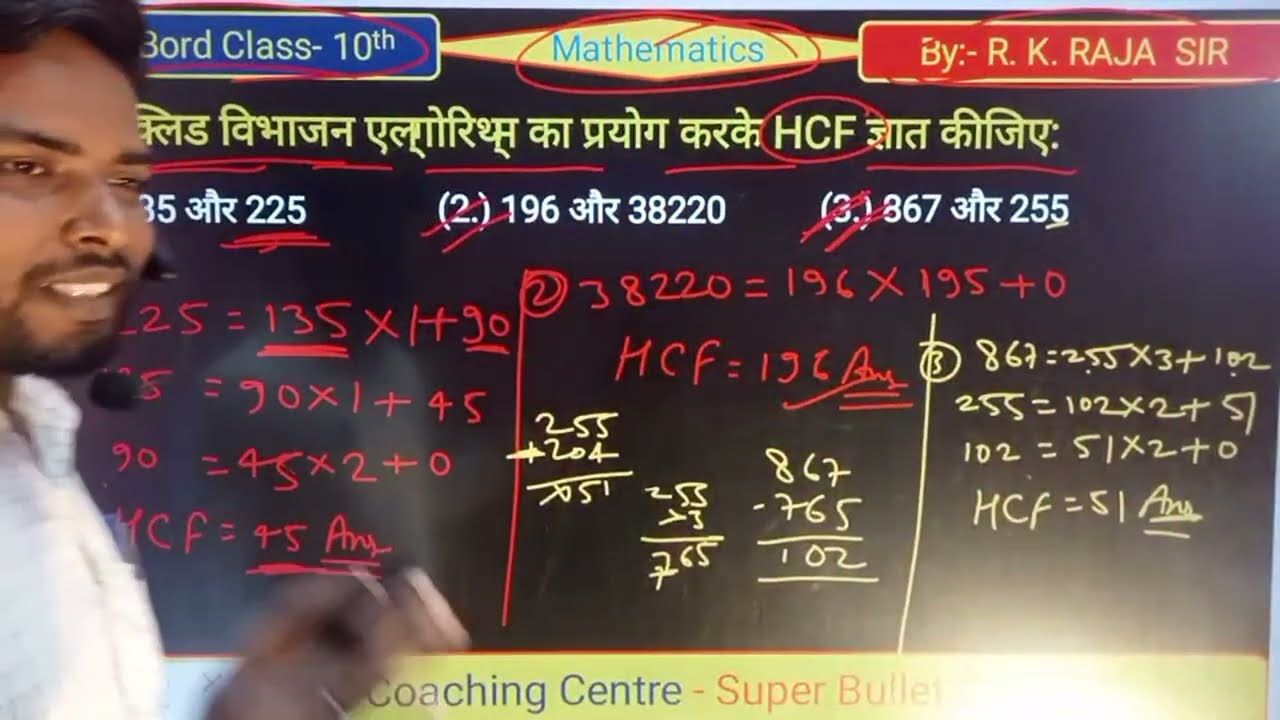 Bord Class- 10th
Mathematics
By:- R. K. RAJA SIR
क्लिड विभाजन एल्गोरिथ्म का प्रयोग करके HCF ज्ञात कीजिए:
35 और 225
(2.) 196 और 38220
(3.) 867 और 255
25 = 135 × 1 + 90
35 = 90 × 1 + 45
90 = 45 × 2 + 0
HCF = 45 Ans
② 38220 = 196 × 195 + 0
HCF = 196 Ans
255
204
051
255
×3
765
867
-765
102
③ 867 = 255 × 3 + 102
255 = 102 × 2 + 51
102 = 51 × 2 + 0
HCF = 51 Ans
Coaching Centre - Super Bullet